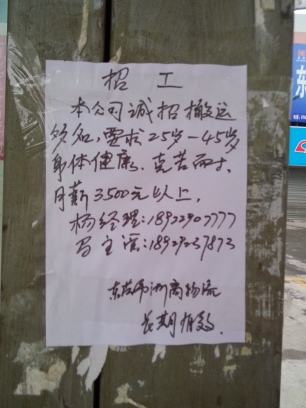 招工
本公司诚招搬运
多名,要求25岁—45岁
身体健康、克苦耐
月薪3500元以上,
杨经理:18922907777
主
东莞市浙商物流
长期有效
东